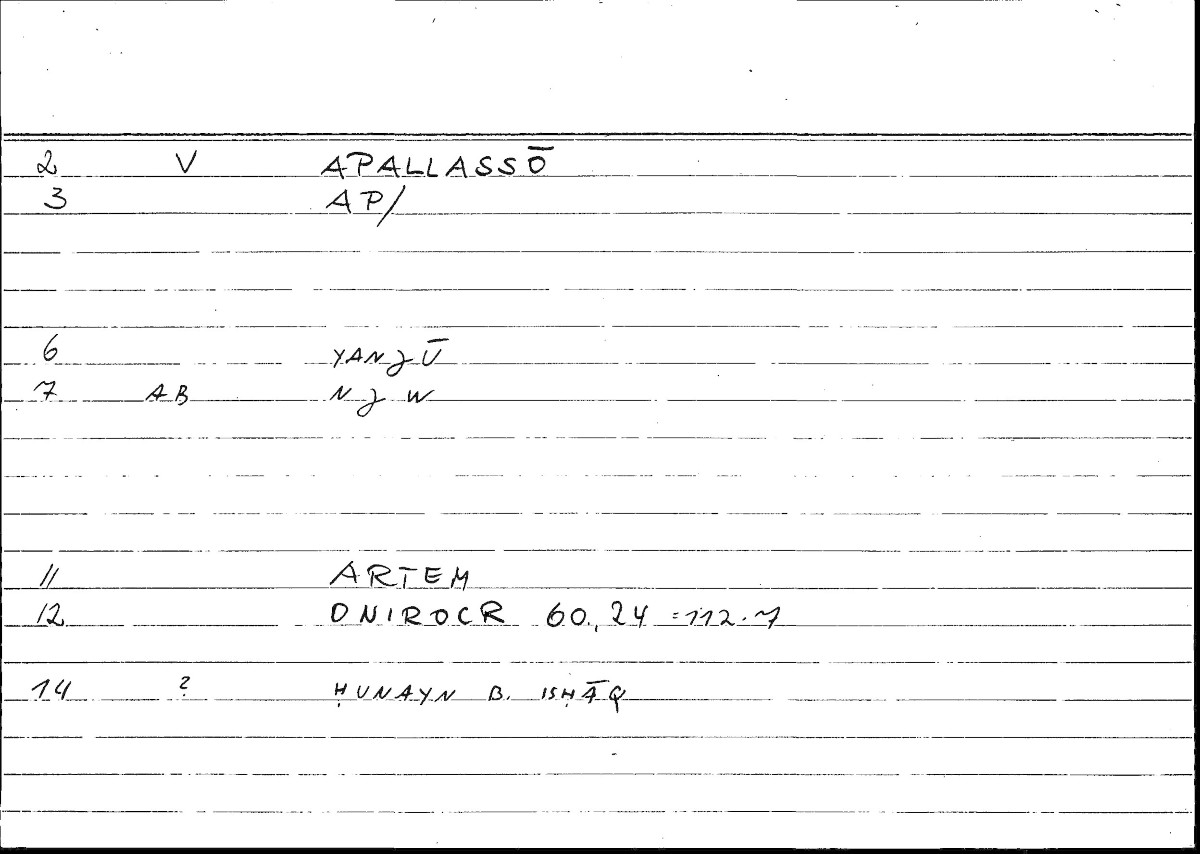 2 V APALLASSŌ
3 AP/
6 YANJŪ
7 AB NJW
11 ARTEM
12 ONIROCR 60,24 =112.7
14 ? ḤUNAYN B. ISḤĀQ